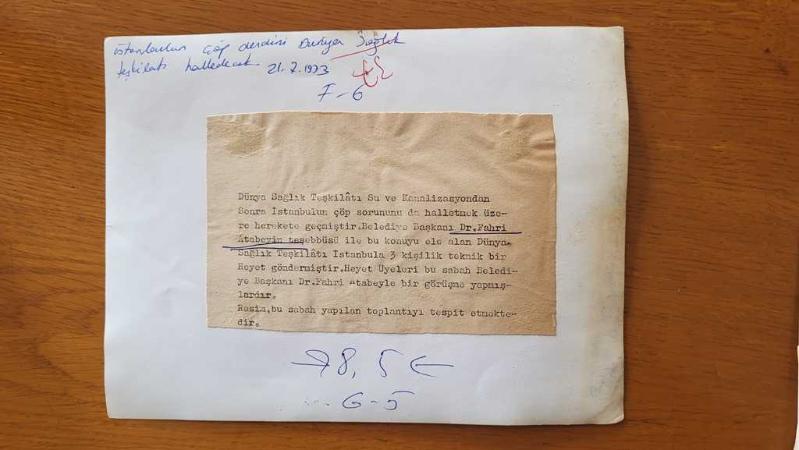 İstanbulun çöp derdini Dünya Sağlık
teşkilatı halledecek 21.2.1973
F-6
Dünya Sağlık Teşkilâtı Su ve Kanalizasyondan
Sonra İstanbulun çöp sorununu da halletmek üze-
re herekete geçmiştir.Belediye Başkanı Dr.Fahri
Atabeyin teşebbüsü ile bu konuyu ele alan Dünya
Sağlık Teşkilâtı İstanbula 3 kişilik teknik bir
Heyet göndermiştir.Heyet Üyeleri bu sabah Beledi-
ye Başkanı Dr.Fahri Atabeyle bir görüşme yapmış-
lardır.
Resim,bu sabah yapılan toplantıyı tespit etmekte-
dir.
→8,5←
6-5